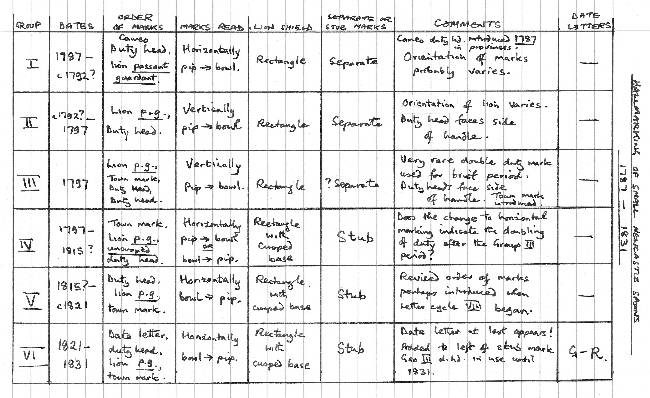 GROUP
DATES
ORDER
OF MARKS
MARKS READ
LION SHIELD
SEPARATE OR
STUB MARKS
COMMENTS
DATE
LETTERS
I
1787 –
c1792?
Cameo
Duty head.
Lion passant
guardant.
Horizontally
pip → bowl.
Rectangle
Separate
Cameo duty hd. introduced 1787
in provinces.
Orientation of marks
probably varies.
—
II
c1792? –
1797
Lion p.g.,
Duty head.
Vertically
pip → bowl
Rectangle
Separate
Orientation of lion varies.
Duty head faces side
of handle.
—
III
1797
Lion p.g.,
Town mark,
Duty Head,
Duty head.
Vertically
pip → bowl.
Rectangle
? Separate
Very rare double duty mark
used for brief period.
Duty heads face side
of handle. Town mark
introduced.
—
IV
1797 –
1815 ?
Town mark.
Lion p.g.,
uncusped
duty head.
Horizontally
pip → bowl
or
bowl → pip.
Rectangle
with
cusped
base
Stub
Does the change to horizontal
marking indicate the doubling
of duty after the Group III
period?
—
V
1815? –
c1821
Duty head.
Lion p.g.
town mark.
Horizontally
bowl → pip.
Rectangle.
with
cusped base
Stub
Revised order of marks
perhaps introduced when
letter cycle VIII began.
—
VI
1821 –
1831
Date letter,
duty head,
lion p.g.,
town mark.
Horizontally
bowl → pip.
Rectangle
with
cusped base
Stub
Date letter at last appears!
Added to left of stub mark
Geo III d.hd. in use until
1831.
G–R.
HALLMARKING OF SMALL NEWCASTLE SPOONS
1787 — 1831